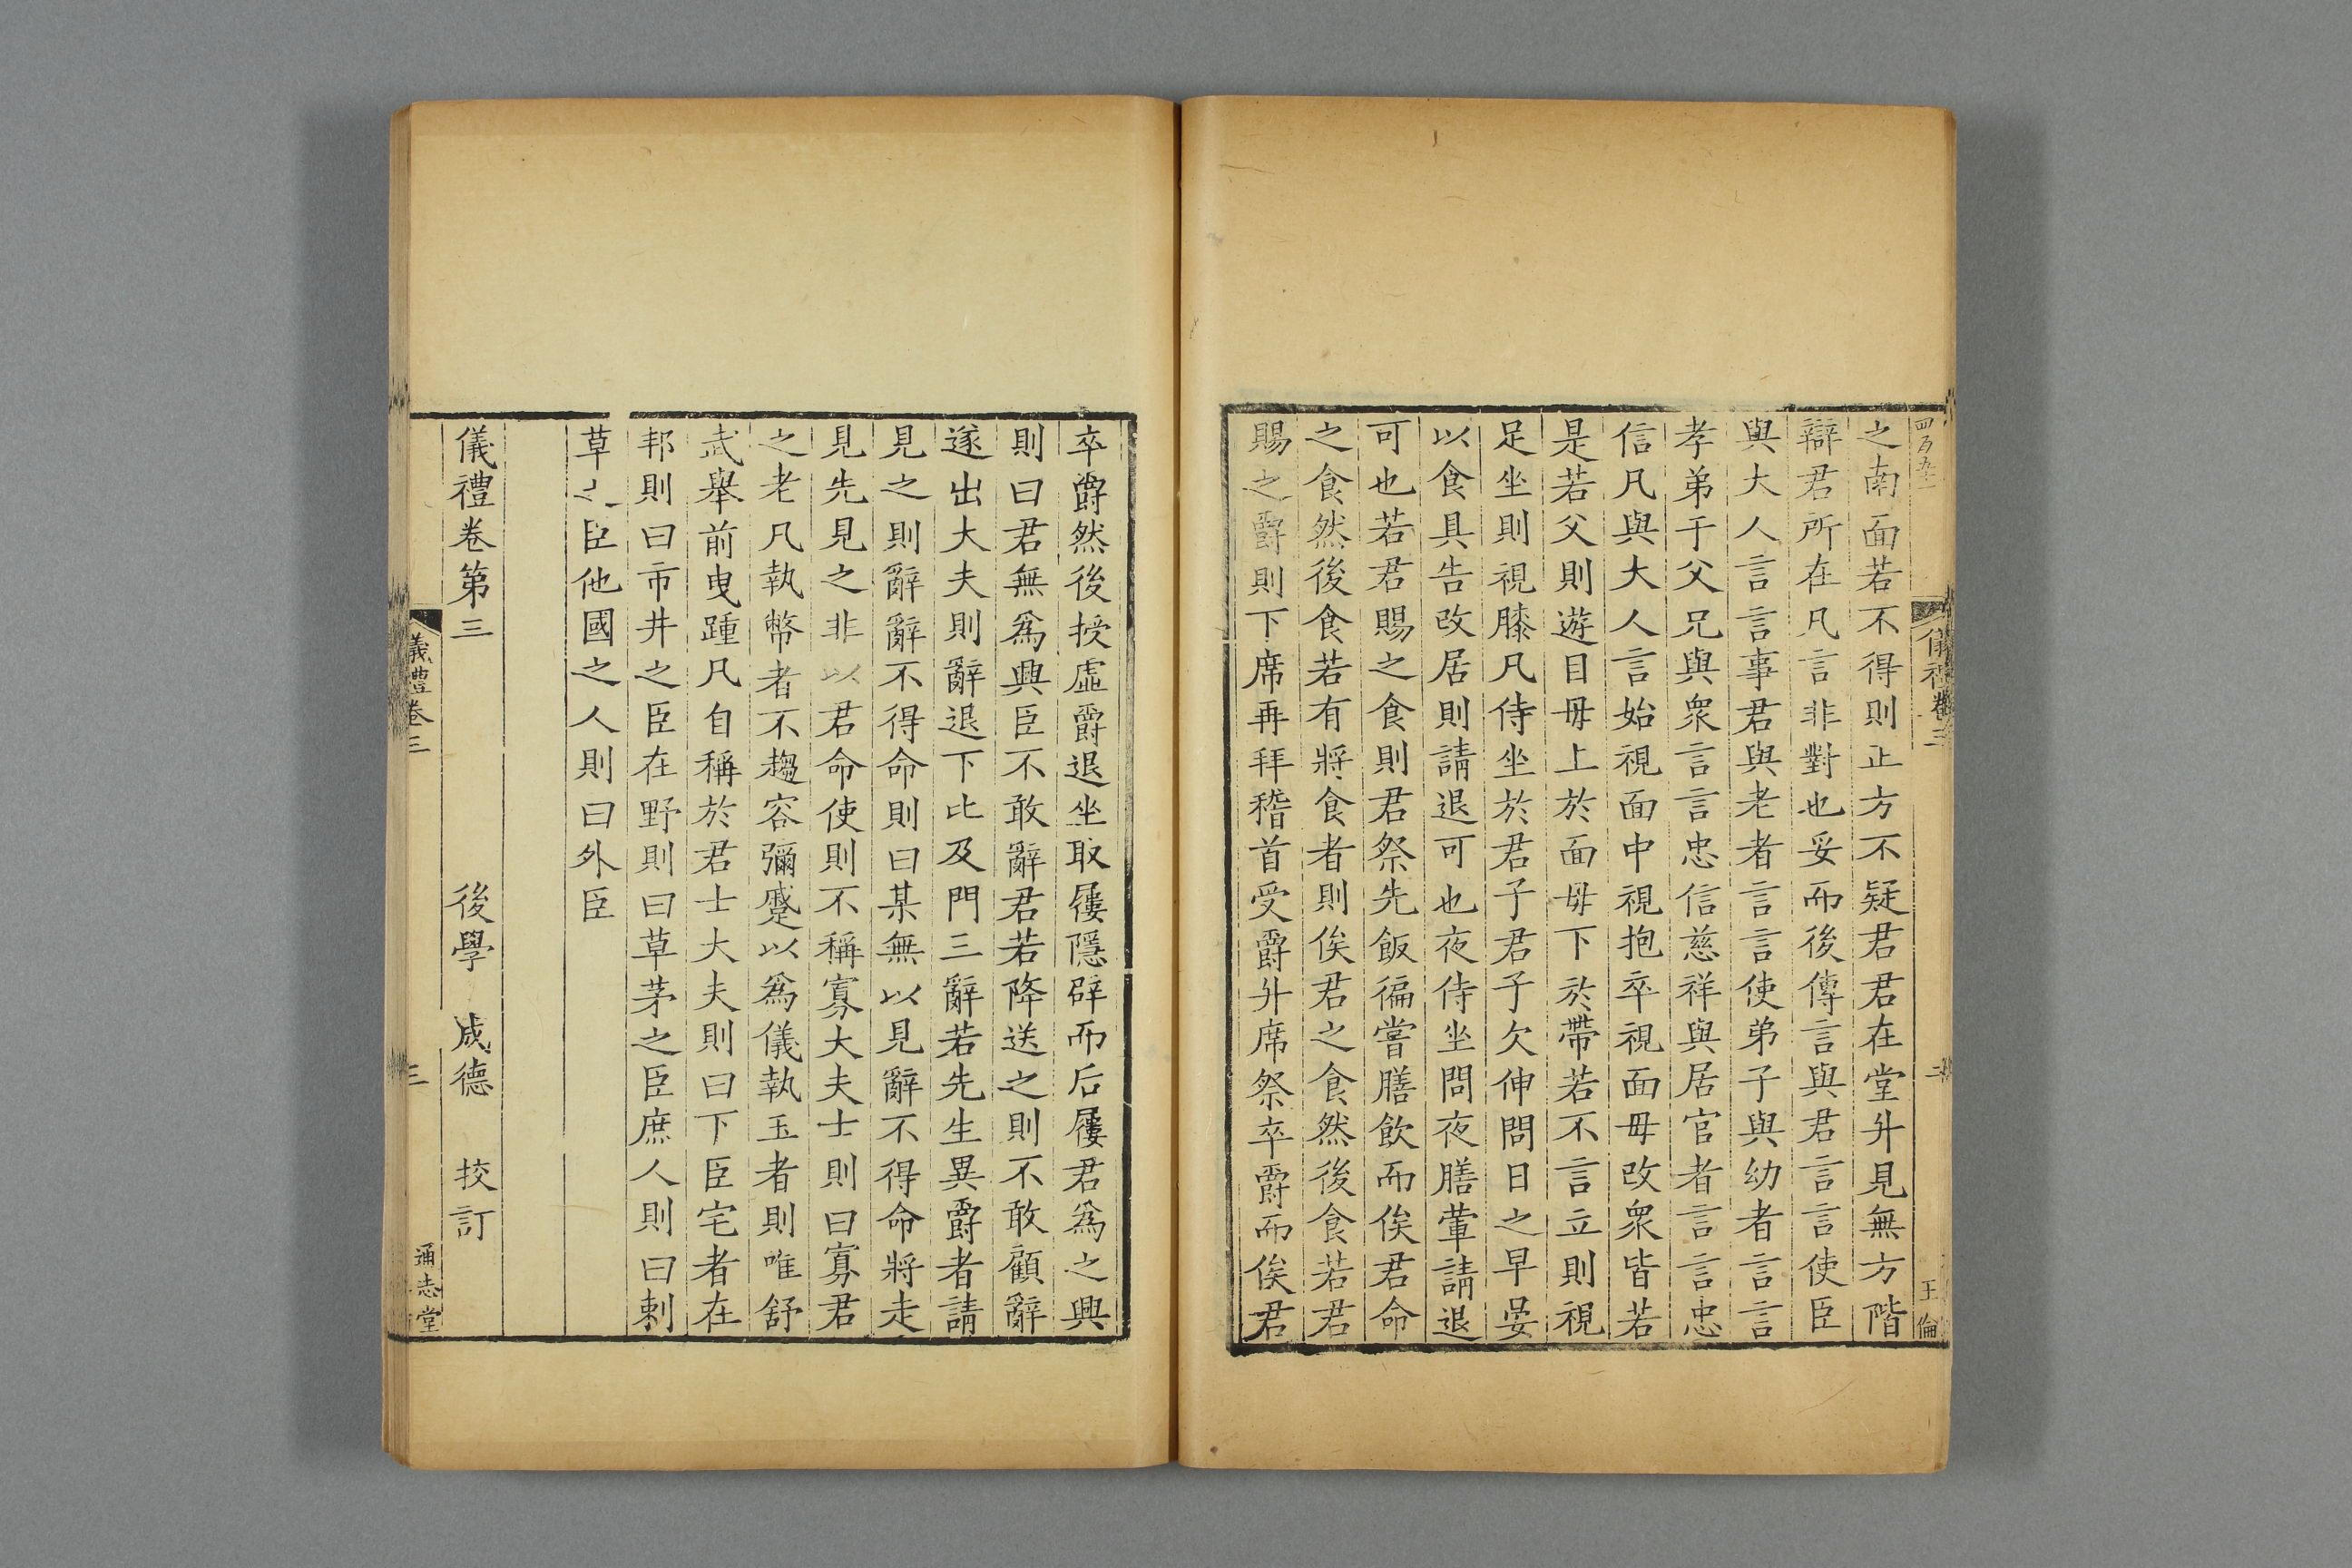 四百五十一
儀禮卷三
二
王倫
之南面若不得則正方不疑君君在堂升見無方階
辯君所在凡言非對也妥而後傳言與君言言使臣
與大人言言事君與老者言言使弟子與幼者言言
孝弟于父兄與衆言言忠信慈祥與居官者言言忠
信凡與大人言始視面中視抱卒視面毋改衆皆若
是若父則遊目毋上於面毋下於帶若不言立則視
足坐則視膝凡侍坐於君子君子欠伸問日之早晏
以食具告改居則請退可也夜侍坐問夜膳葷請退
可也若君賜之食則君祭先飯徧嘗膳飲而俟君命
之食然後食若有將食者則俟君之食然後食若君
賜之爵則下席再拜稽首受爵升席祭卒爵而俟君
卒爵然後授虛爵退坐取屨隱辟而后屨君爲之興
則曰君無爲興臣不敢辭君若降送之則不敢顧辭
遂出大夫則辭退下比及門三辭若先生異爵者請
見之則辭辭不得命則曰某無以見辭不得命將走
見先見之非以君命使則不稱寡大夫士則曰寡君
之老凡執幣者不趨容彌蹙以爲儀執玉者則唯舒
武舉前曳踵凡自稱於君士大夫則曰下臣宅者在
邦則曰市井之臣在野則曰草茅之臣庶人則曰刺
草之臣他國之人則曰外臣
儀禮卷第三 後學 成德 挍訂
儀禮卷三
三
通志堂